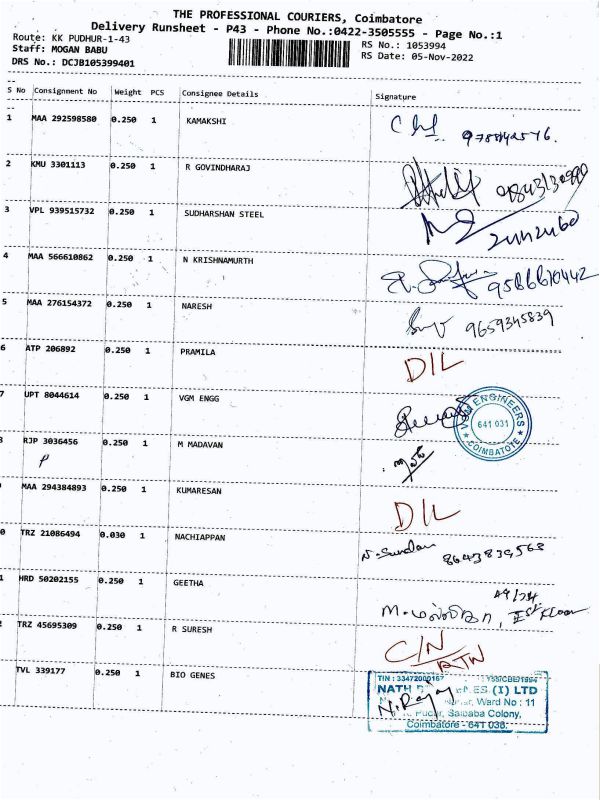 THE PROFESSIONAL COURIERS, Coimbatore
Delivery Runsheet - P43 - Phone No.:0422-3505555 - Page No.:1
Route: KK PUDHUR-1-43
Staff: MOGAN BABU
DRS No.: DCJB105399401
RS No.: 1053994
RS Date: 05-Nov-2022
S No Consignment No Weight PCS Consignee Details Signature
1 MAA 292598580 0.250 1 KAMAKSHI
2 KMU 3301113 0.250 1 R GOVINDHARAJ
3 VPL 939515732 0.250 1 SUDHARSHAN STEEL
4 MAA 566610862 0.250 1 N KRISHNAMURTH 9586670442
5 MAA 276154372 0.250 1 NARESH 9659345839
6 ATP 206892 0.250 1 PRAMILA D/L
7 UPT 8044614 0.250 1 VGM ENGG
ENGINEERS
641 031
COIMBATORE
RJP 3036456 0.250 1 M MADAVAN
P
MAA 294384893 0.250 1 KUMARESAN D/L
0 TRZ 21086494 0.030 1 NACHIAPPAN 8643839568
1 HRD 50202155 0.250 1 GEETHA
Ist Floor
TRZ 45695309 0.250 1 R SURESH C/N
RTN
TVL 339177 0.250 1 BIO GENES
TIN : 33472000167
NATH (I) LTD
N. Rajay
Ward No : 11
Saibaba Colony,
Coimbatore - 641 038.